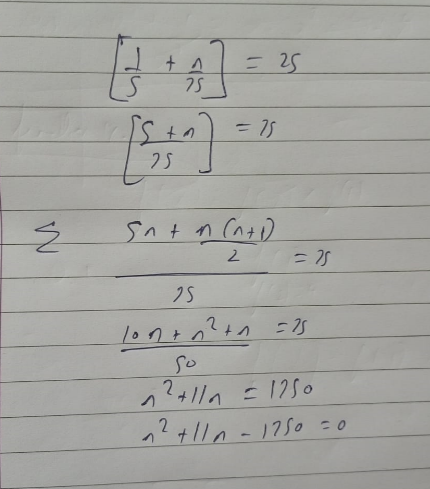 [1/5 + n/25] = 25
[5 + n/25] = 25
Σ 5n + n(n+1)/2 / 25 = 25
10n + n² + n / 50 = 25
n² + 11n = 1250
n² + 11n - 1250 = 0